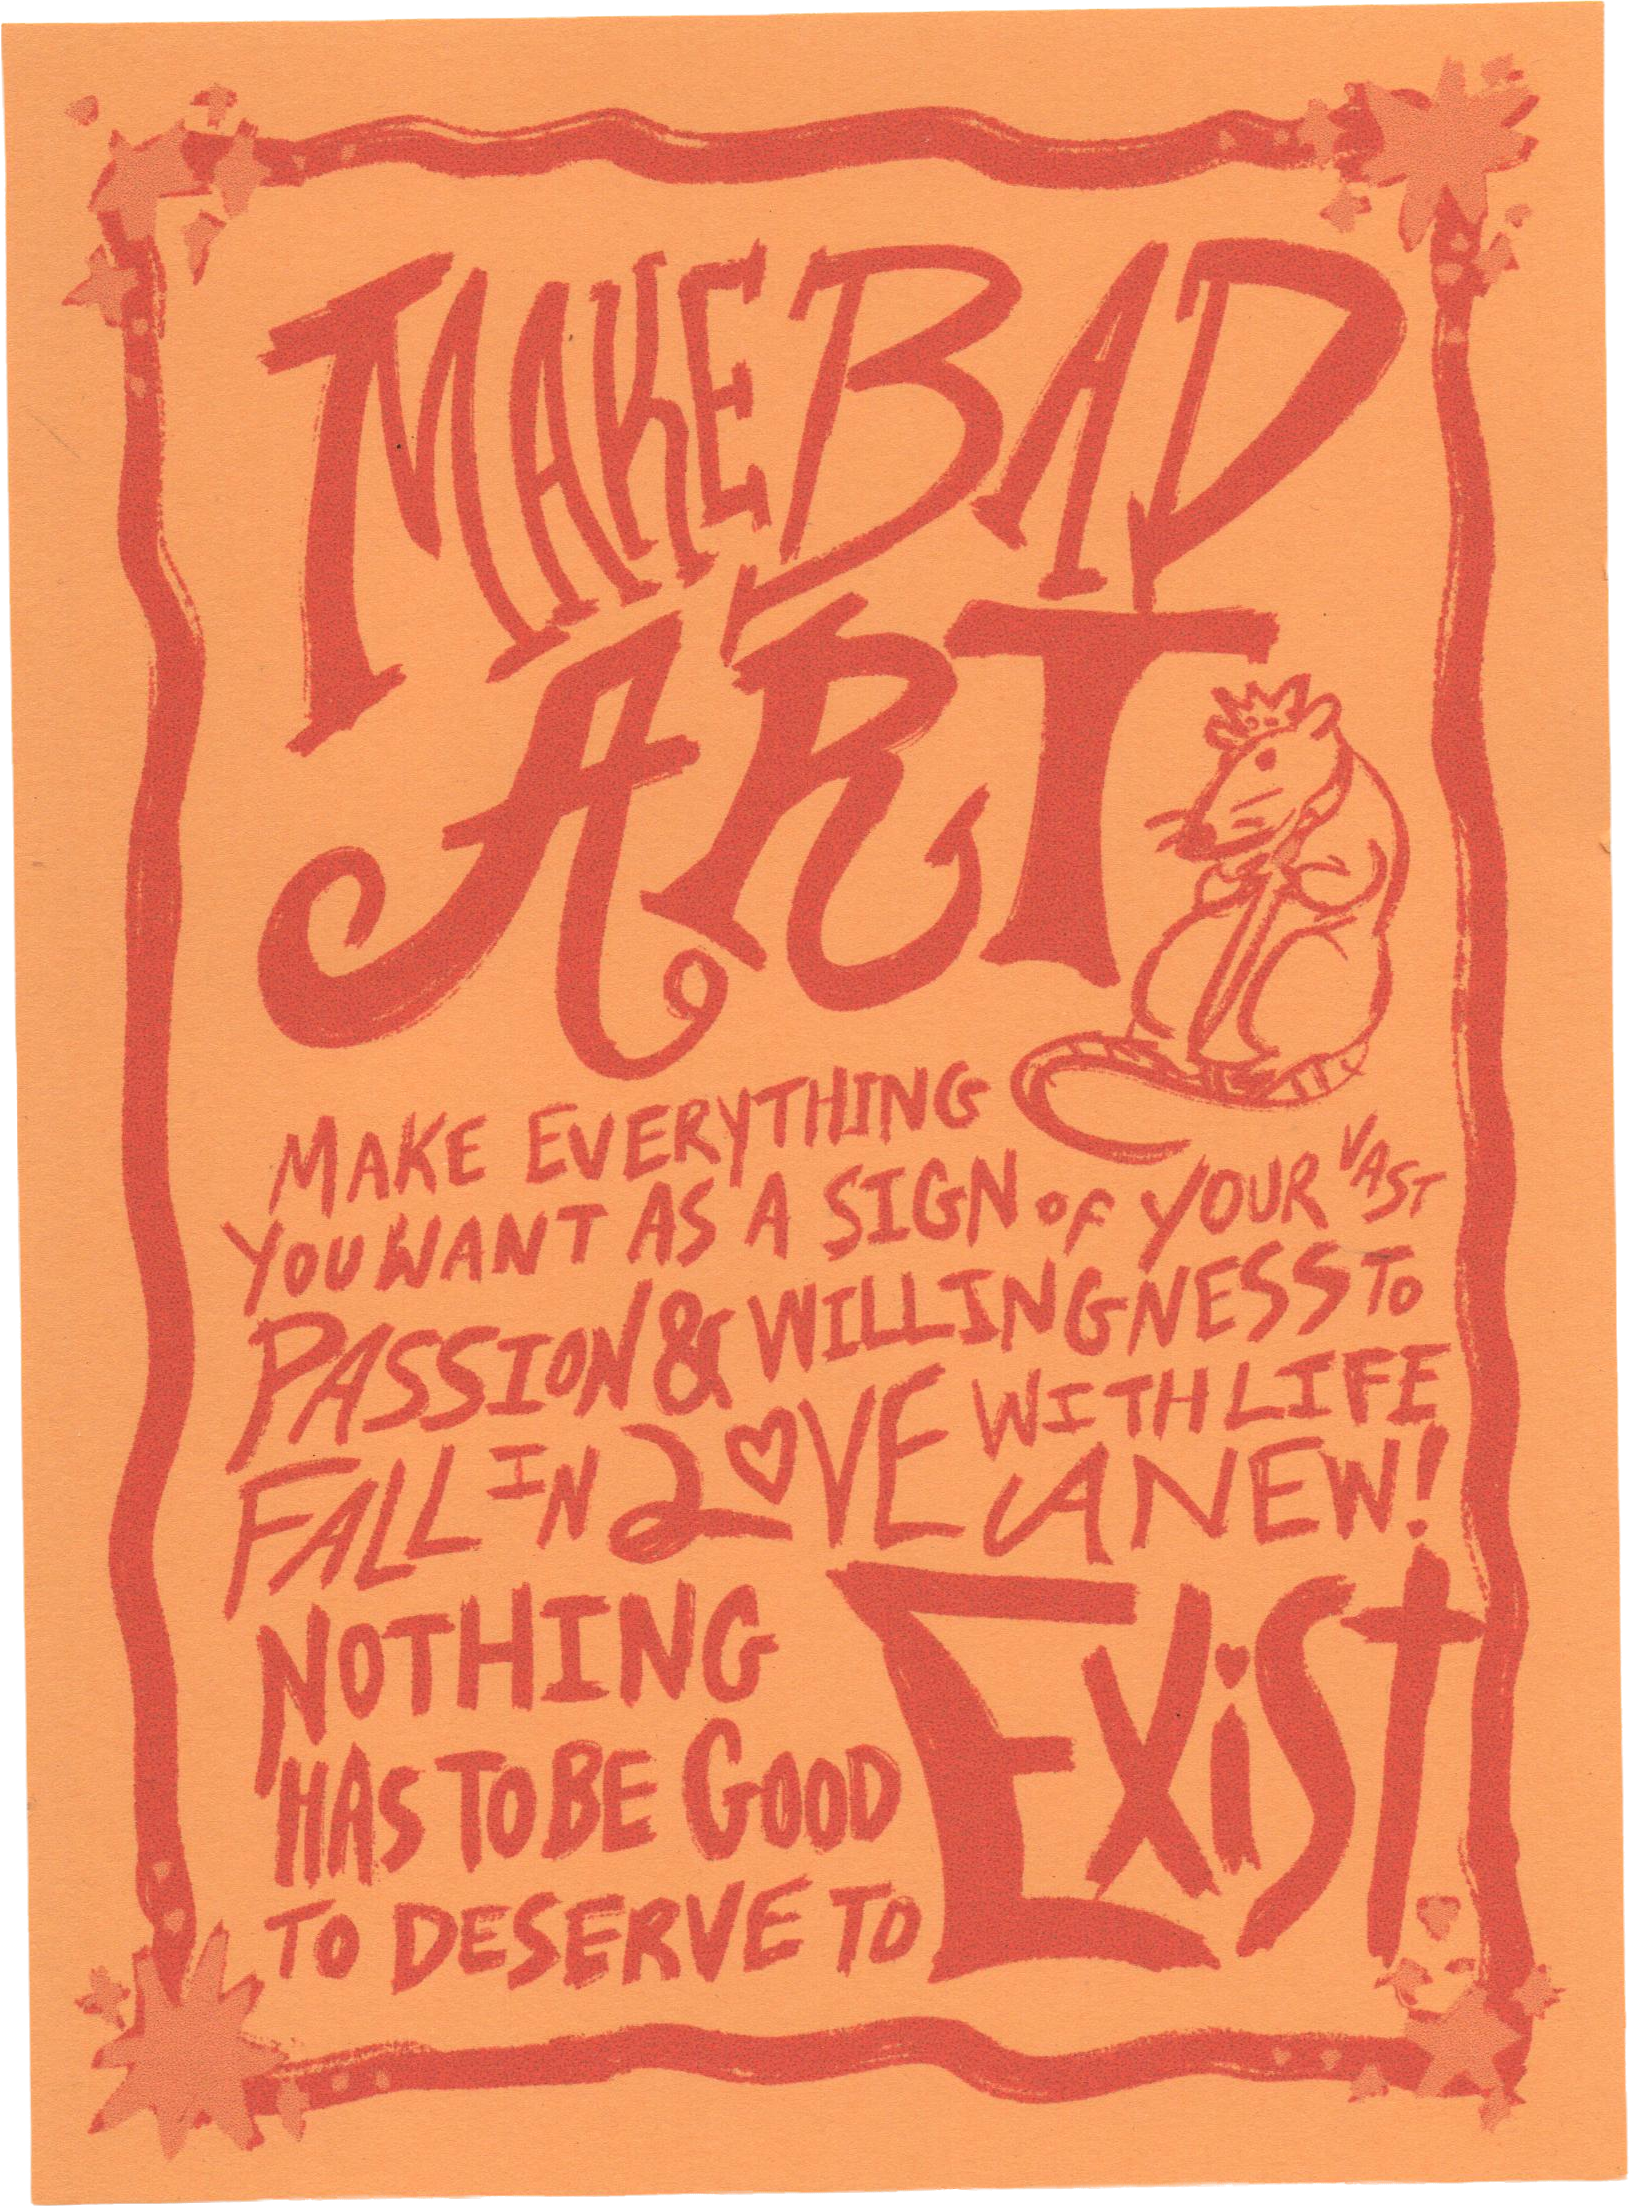 MAKE BAD
ART
MAKE EVERYTHING
YOU WANT AS A SIGN OF YOUR VAST
PASSION & WILLINGNESS TO
FALL IN LOVE WITH LIFE
ANEW!
NOTHING
HAS TO BE GOOD
TO DESERVE TO EXIST